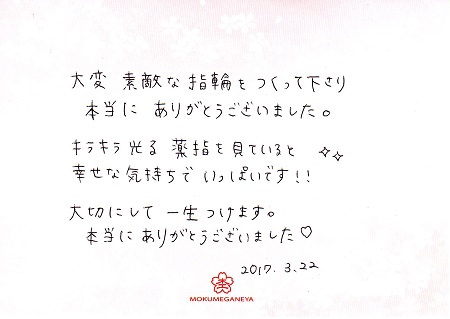 大変 素敵な指輪をつくって下さり
本当に ありがとうございました。
キラキラ光る 薬指を見ていると
幸せな気持ちで いっぱいです!!
大切にして 一生つけます。
本当にありがとうございました♡
2017. 3. 22
MOKUMEGANEYA